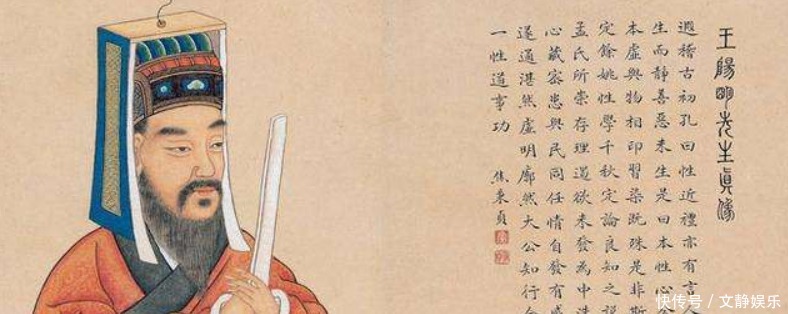 王陽明先生真像
遐稽古初孔曰性近禮亦有言人
生而靜善惡未生是曰本性心
本虛與物相印習染既殊是非斯
定餘姚性學千秋定論良知之說
孟氏所崇存理遏欲未發為中洗
心藏密患與民同任情自發有感
遂通湛然虛明廓然大公知行合
一性道事功
焦秉貞
快传号／文静娱乐